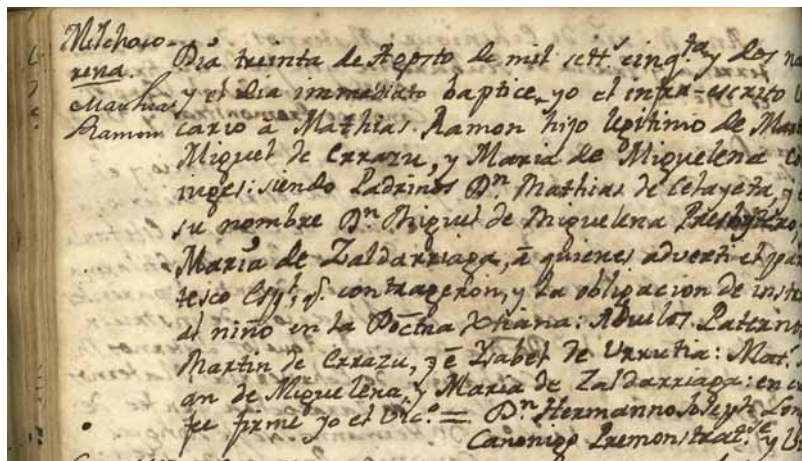 Milchoro-
rena.
Mathias
Ramon
Dia treinta de Agosto de mil sett.s cinq.ta y dos na
y el dia immediato baptice, yo el infra-escrito V
cario à Mathias Ramon hijo legitimo de Mar
Miguel de Errazu, y Maria de Miguelena Co
niuges: siendo Padrinos D.n Mathias de Celayeta, y
su nombre D.n Miguel de Miguelena Presbytero,
Maria de Zaldarriaga, à quienes adverti el par
tesco Esp.l, q.e contrageron, y la obligacion de instr
al niño en la Doctna Xtiana. Abuelos Paterno
Martin de Errazu, y Ysabel de Urrutia: Mat.s
an de Miguelena, y Maria de Zaldarriaga: en c
fe firmé yo el Vic.o = D.n Hermanno Joseph
Canonigo Premonstrat.se y V